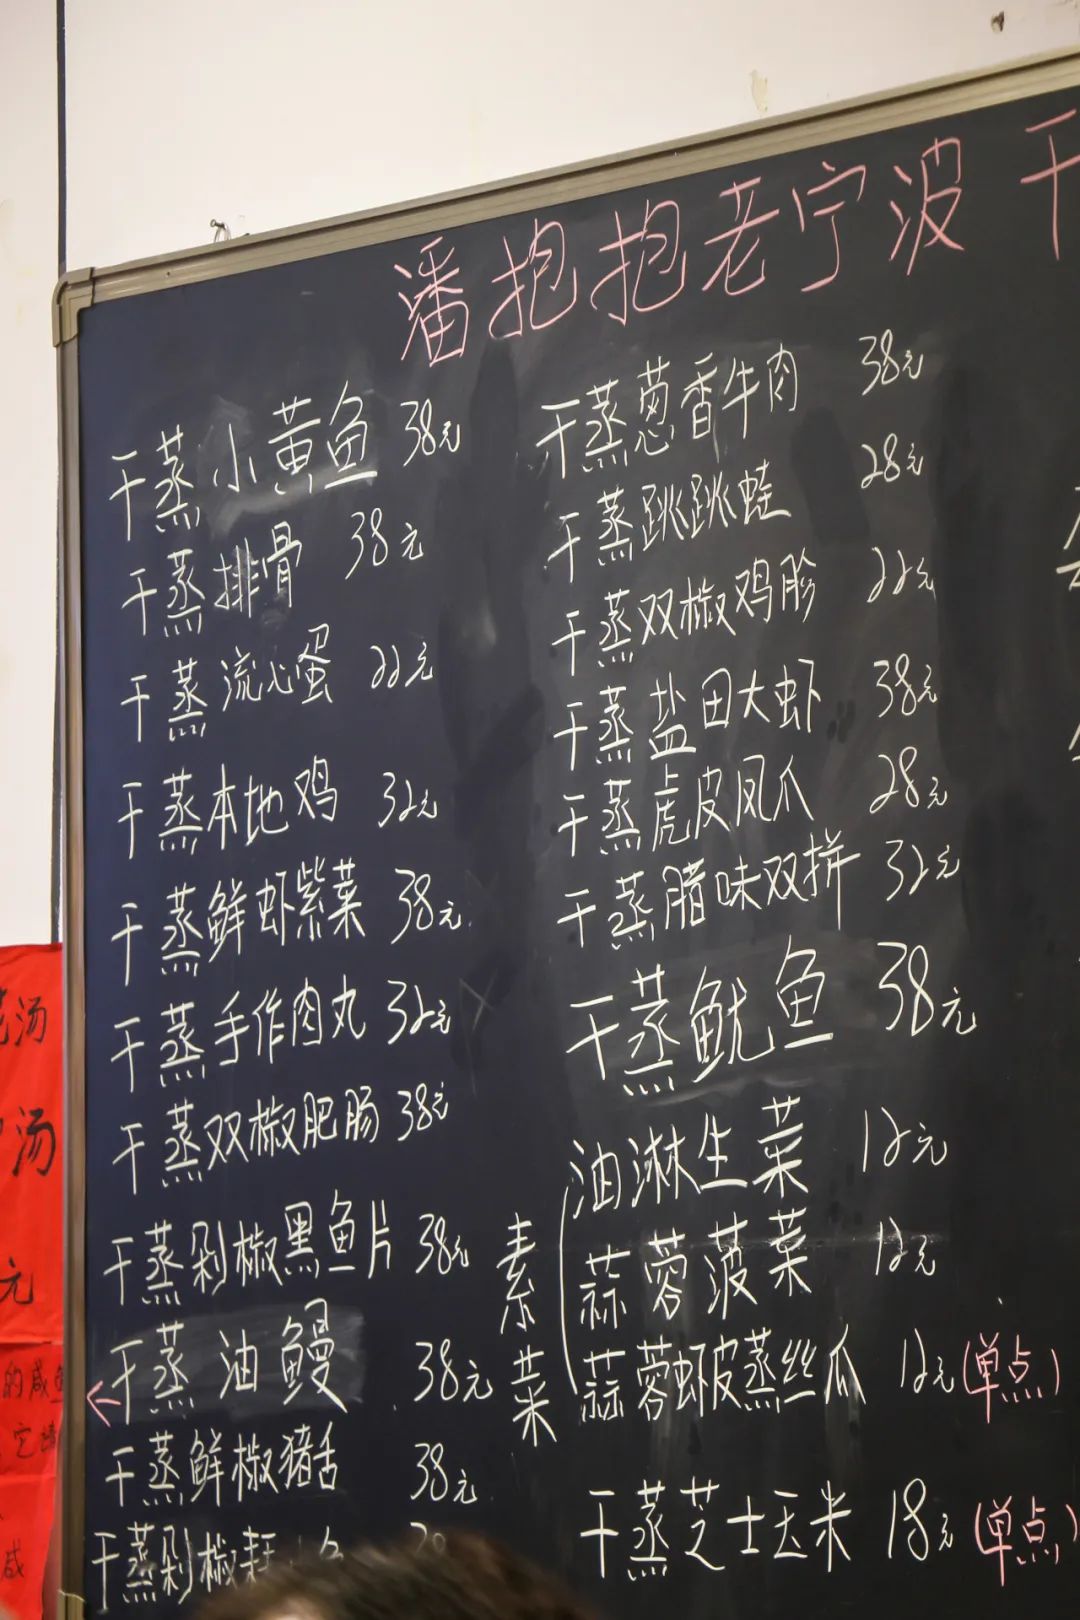 潘抱抱老宁波 干
干蒸小黄鱼 38元
干蒸排骨 38元
干蒸流心蛋 22元
干蒸本地鸡 32元
干蒸鲜虾紫菜 38元
干蒸手作肉丸 32元
干蒸双椒肥肠 38元
干蒸剁椒黑鱼片 38元
干蒸油鳗 38元
干蒸鲜椒猪舌 38元
干蒸剁椒
干蒸葱香牛肉 38元
干蒸跳跳蛙 28元
干蒸双椒鸡胗 22元
干蒸盐田大虾 38元
干蒸虎皮凤爪 28元
干蒸腊味双拼 32元
干蒸鱿鱼 38元
素菜
油淋生菜 12元
蒜蓉菠菜 12元
蒜蓉虾皮蒸丝瓜 12元(单点)
干蒸芝士玉米 18元(单点)
汤
汤
元
的咸鱼
咸